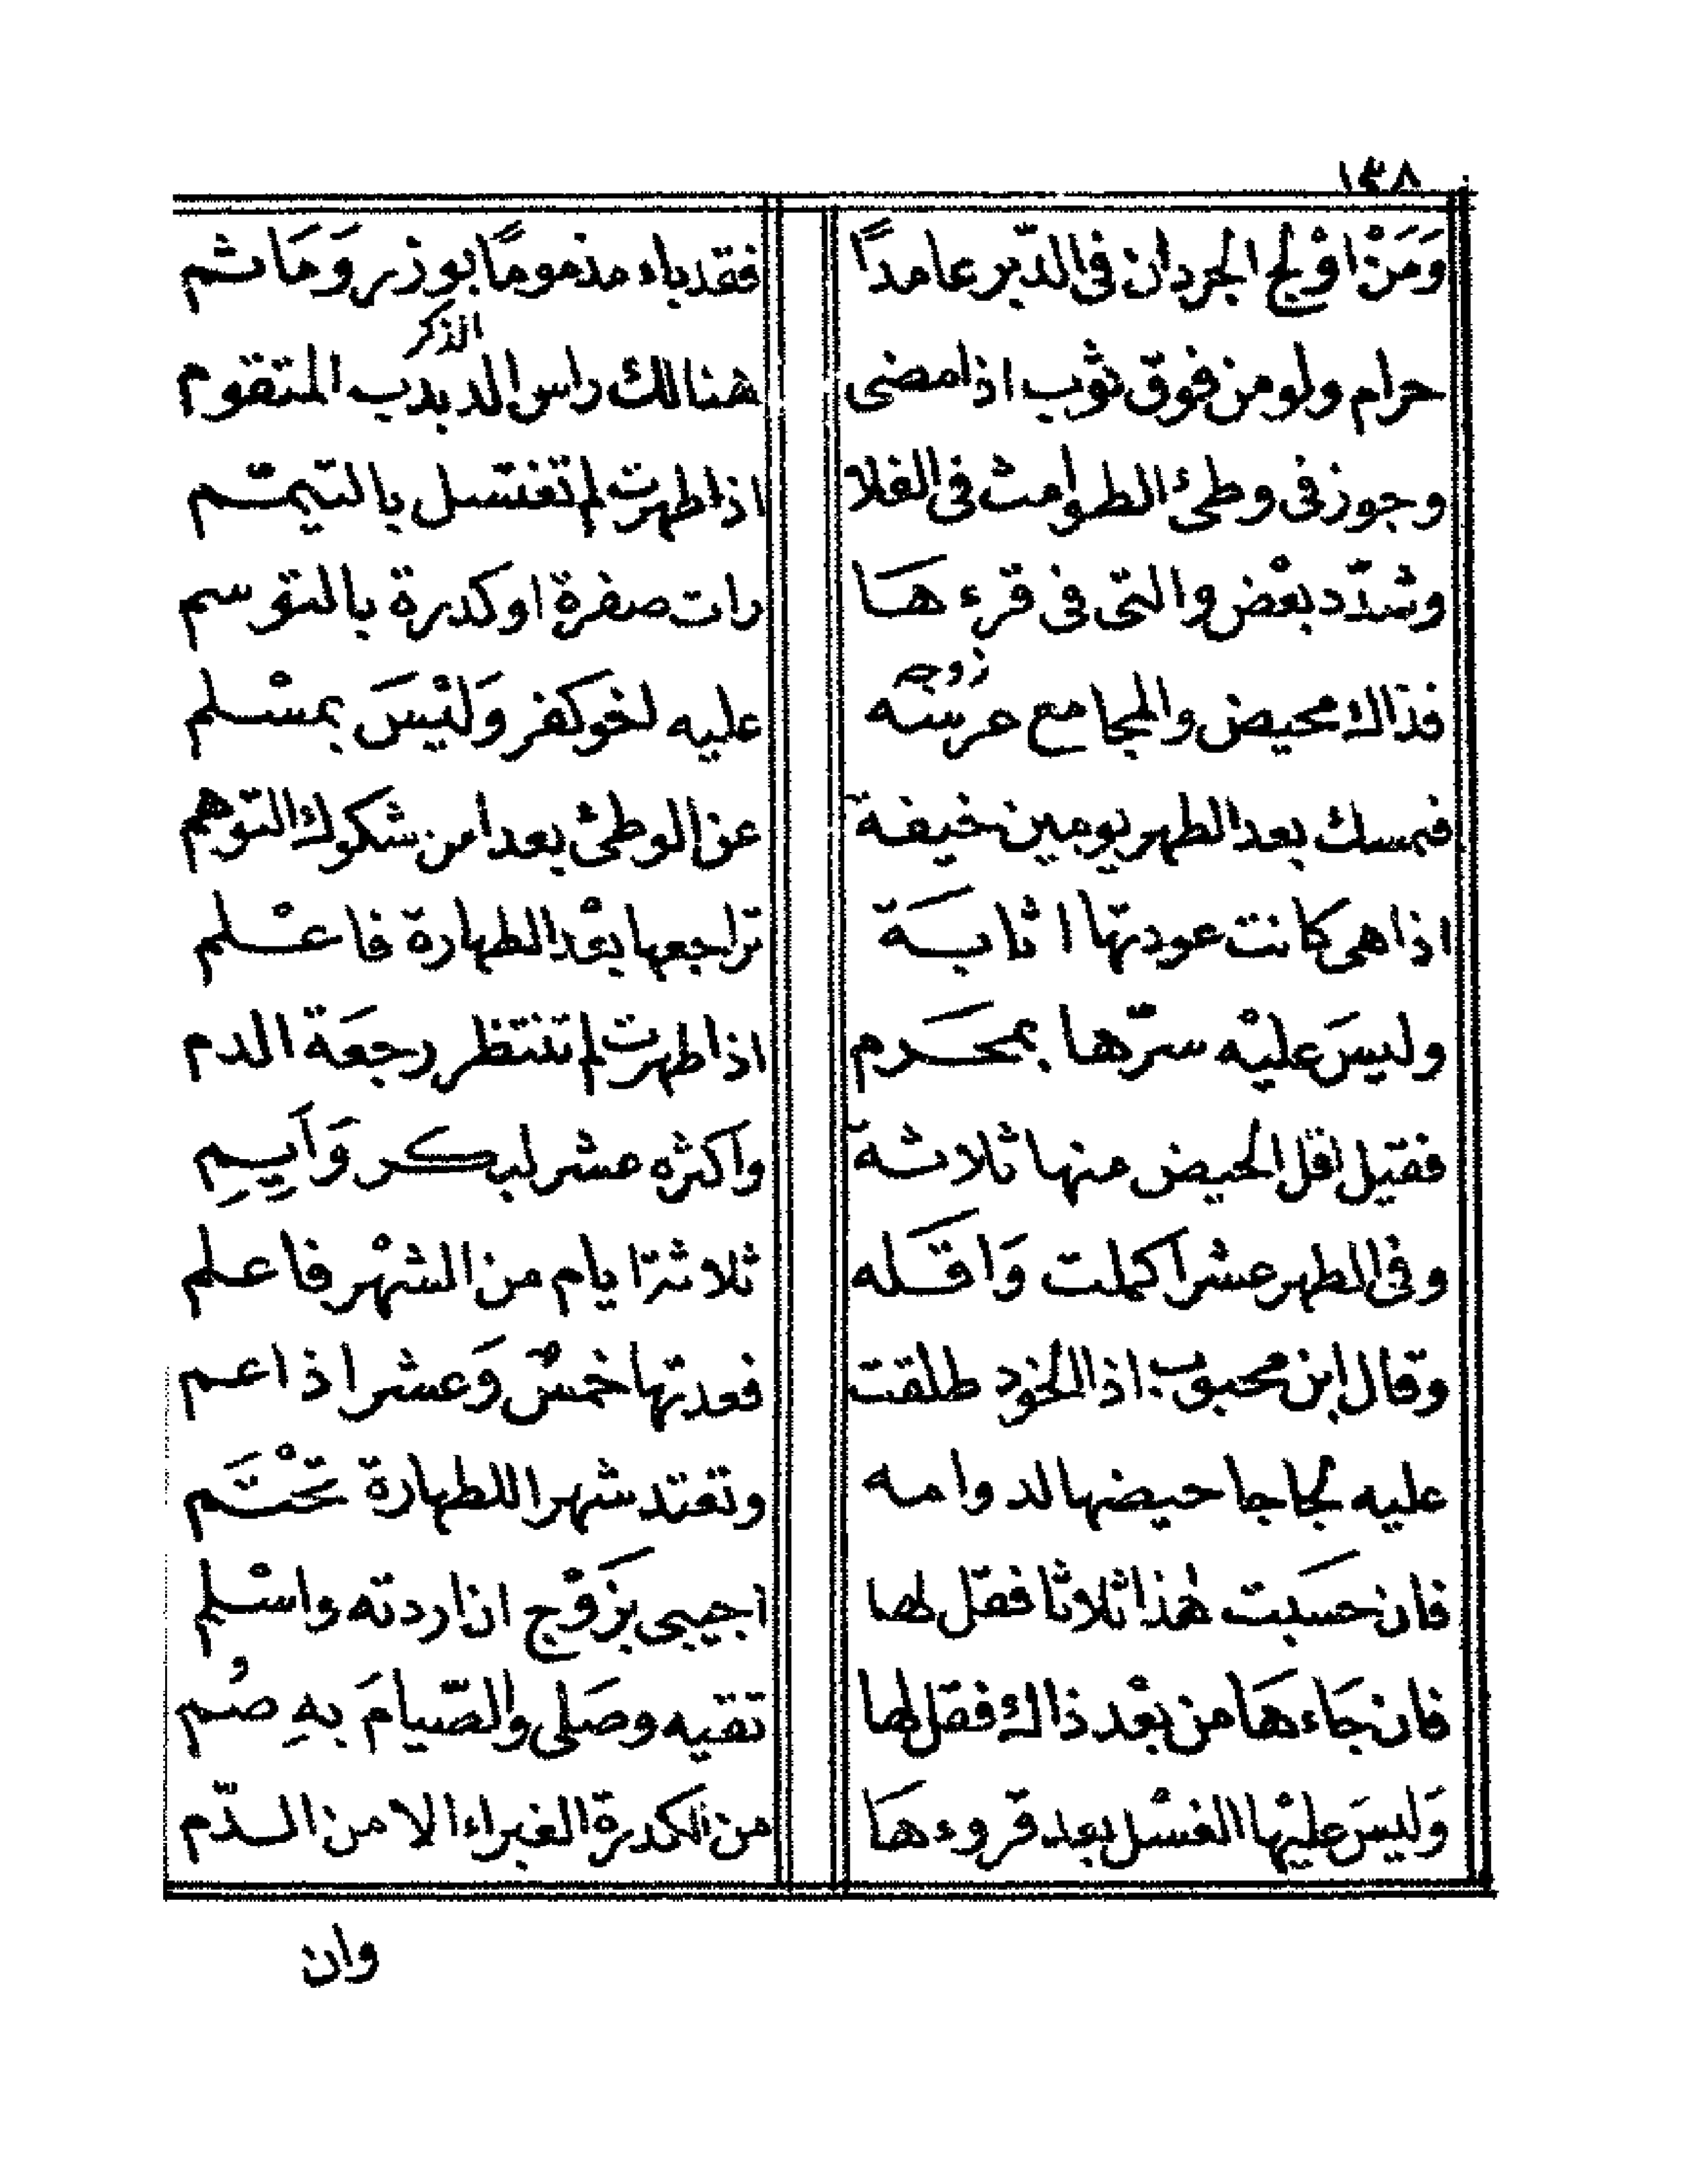 ١٣٨
وَمَنْ اوْلج الجردان فى الدّبر عامداً فقد باء مذموماً بوزر وَمَاثم
الذكر
حرام ولو من فوق ثوب اذا مضى هنالك راس الدبدب المتقوم
وجوز فى وطئ الطوامث فى الفلا اذا طهرت لم تغتسل بالتيمّم
وشدّد بعْض والتى فى قرءهَا رات صفرة او كدرة بالتوسم
زوجه
فذاك محيض والمجامع عرسه عليه لخو كفر وَليْسَ بمسْلم
فيمسك بعد الطهر يومين خيفة عن الوطئ بعدا من شكوك التوهم
اذا هى كانت عودتها اثابَة تراجعها بعْد الطهارة فاعْلم
وليسَ عليْه سرّها بمحَرم اذا طهرت لم تنتظر رجعَة الدم
فقيل اقل الحيض منها ثلاثة واكثره عشر لبكر وَاَيِمِ
وفى الطهر عشرا كملت وَاقَله ثلاثة ايام من الشهْر فاعلم
وقال ابن محبوب اذا الخود طلقت فعدتها خمسٌ وَعشر اذا عم
عليه لجاجا حيضها لدوامه وتعتد شهرا للطهارة تحْتَم
فان حسَبت هٰذا ثلاثا فقل لها اجيبى بزَوْج ان اردته واسْلم
فان جَاءهَا من بعْد ذاك فقل لها تقيه وصَلى والصّيامَ بهِ صُم
وَليسَ عليْها الغسْل بعد قروءهَا من الكدرة الغبراء الا من الدّم
وان